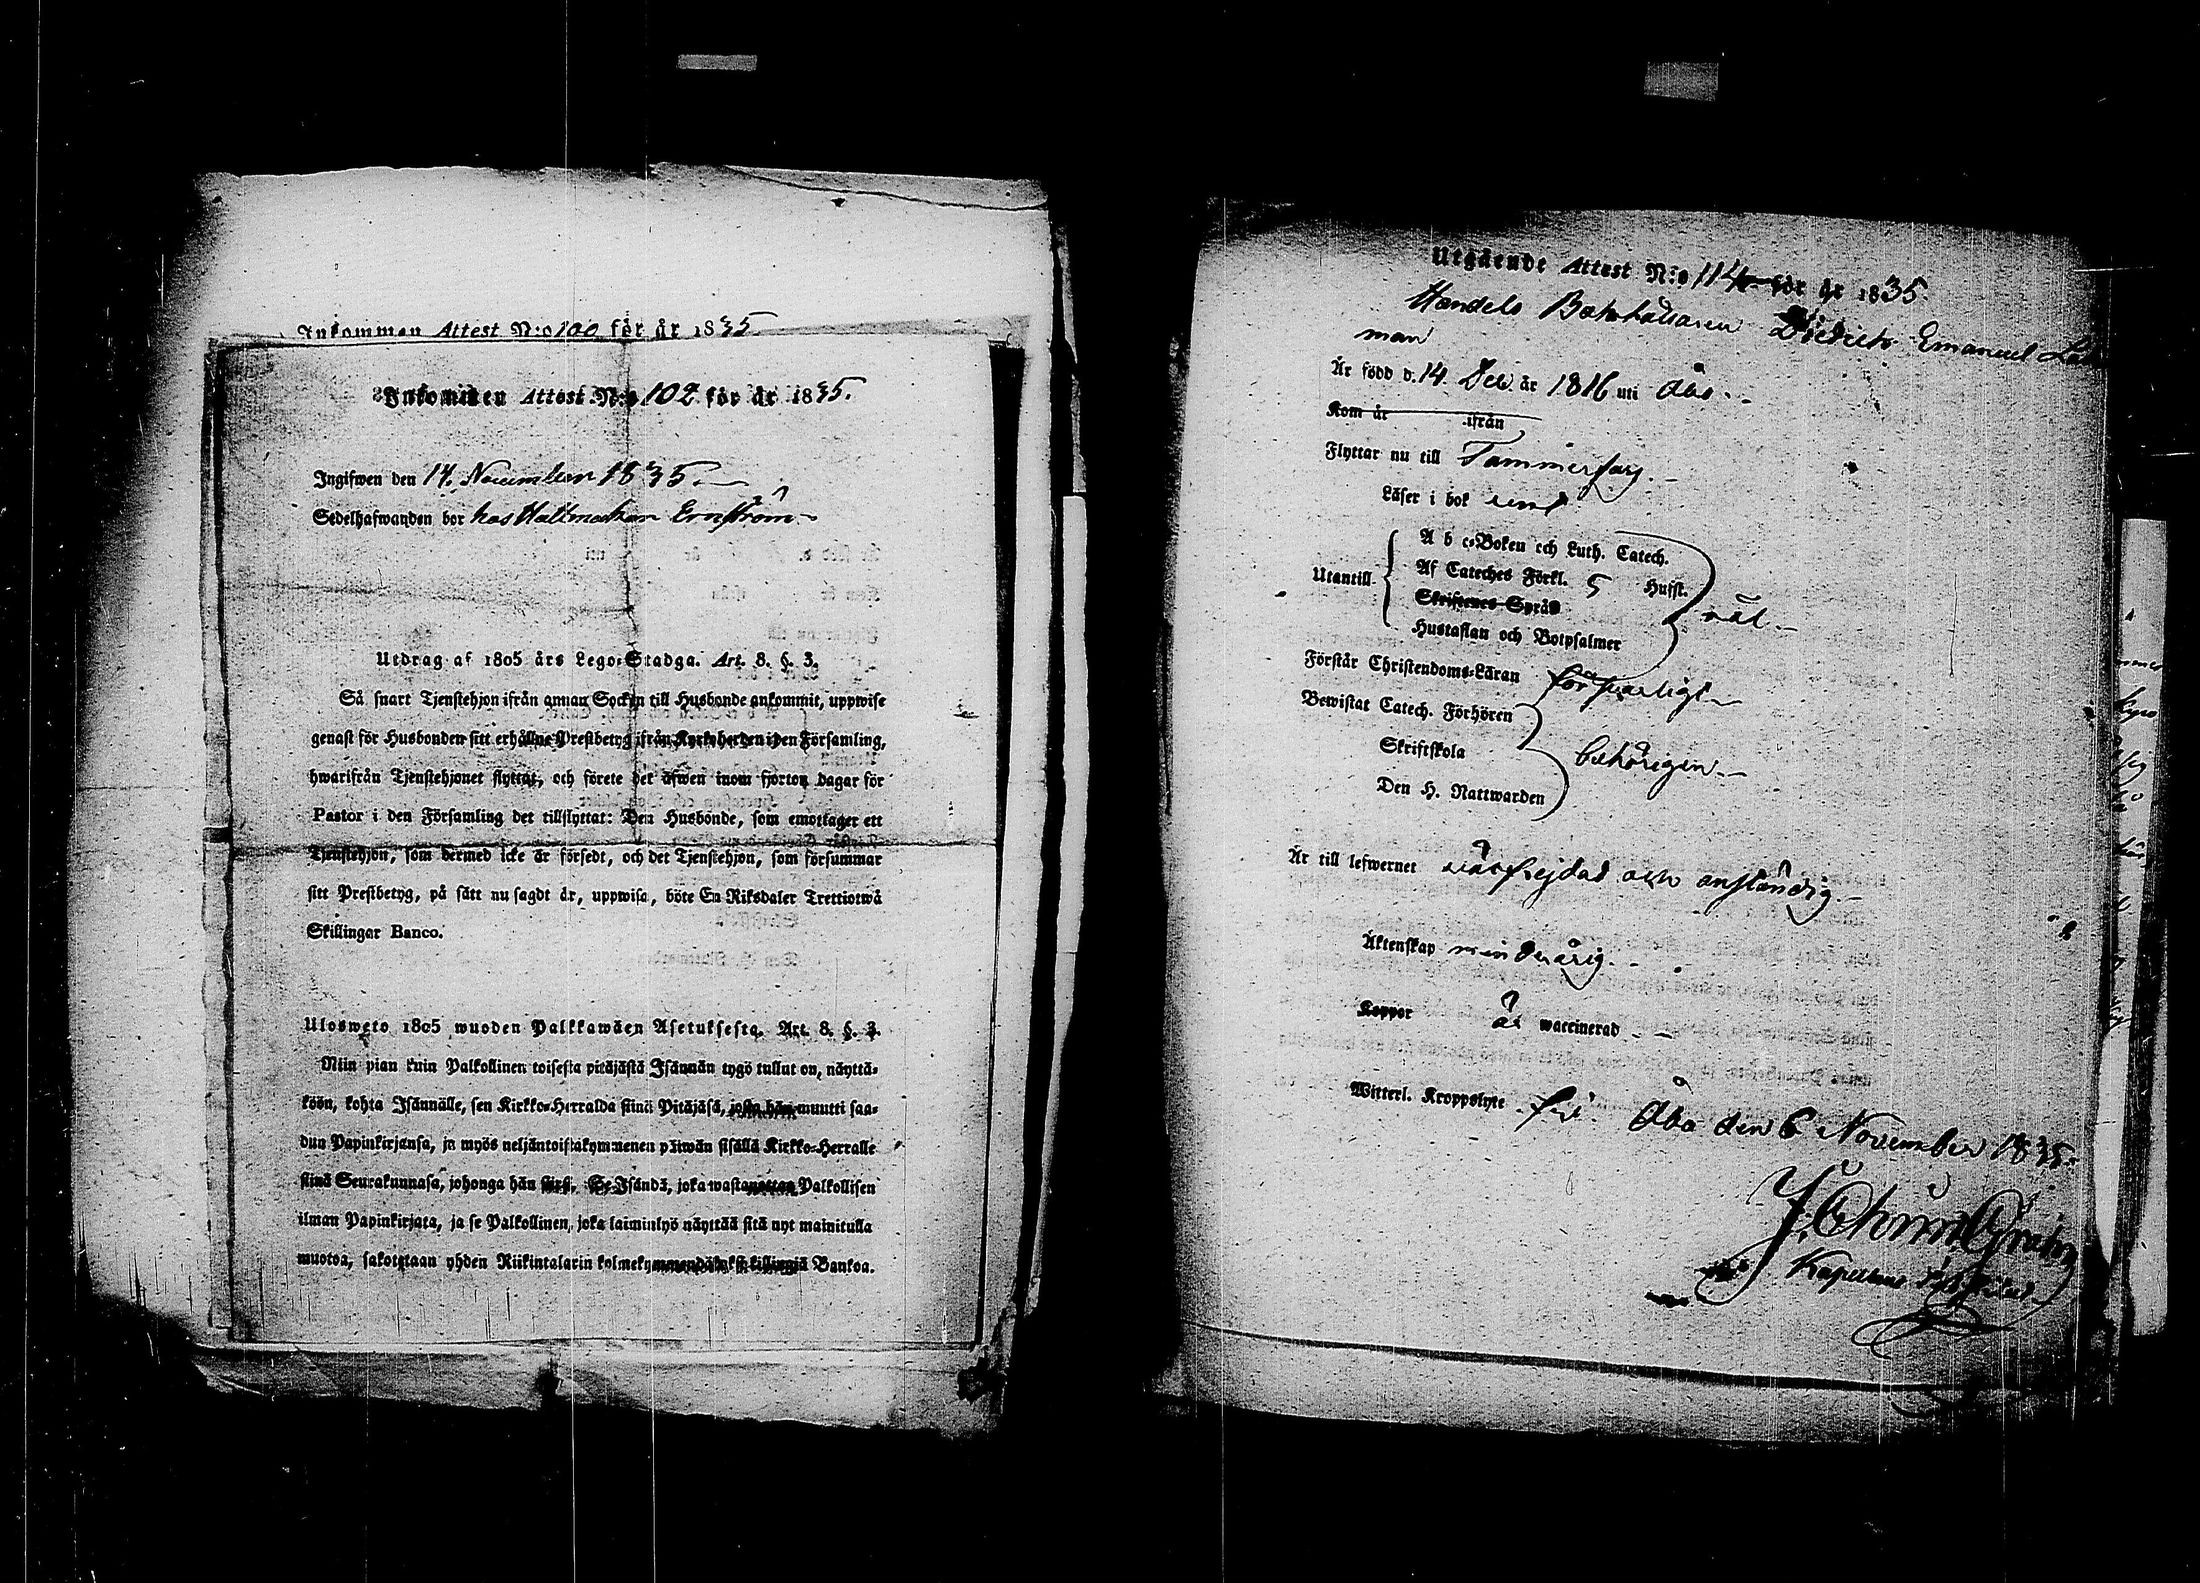 Inkommen Attest N:o 100 för år 1835
Inkommen Attest N:o 102 för år 1835.
Ingifwen den 14. November 1835.
Sedelhafwanden bor hos Hattmakar Ernström
Utdrag af 1805 års Lego-Stadga. Art. 8. §. 3.
Så snart Tjenstehjon ifrån annan Sockin till Husbonde ankommit, uppwise
genast för Husbonden sitt erhållne Prestbetyg ifrån Kyrkoherden i den Församling,
hwarifrån Tjenstehjonet flyttat, och förete det äfwen inom fjorton dagar för
Pastor i den Församling det tillflyttat: Den Husbonde, som emottager ett
Tjenstehjon, som dermed icke är försedt, och det Tjenstehjon, som försummar
sitt Prestbetyg, på sätt nu sagdt är, uppwisa, böte En Riksdaler Trettiotwå
Skillingar Banco.
Ulosweto 1805 wuoden Palkkawäen Asetuksesta. Art. 8. §. 3.
Niin pian kuin Palkollinen toisesta pitäjästä Isännän tygö tullut on, näyttä-
köön, kohta Isännälle, sen Kirkko-Herralda siinä Pitäjäsä, josta hän muutti saa-
dun Papinkirjansa, ja myös neljäntoistakymmenen päiwän sisällä Kirkko-Herralle
siinä Seurakunnasa, johonga hän siirsi. Se Isändä, joka wastanottaa Palkollisen
ilman Papinkirjata, ja se Palkollinen, joka laiminlyö näyttää sitä nyt mainitulla
muotoa, sakotetaan yhden Riikintalarin kolmekymmendäkaksi killingiä Bankoa.
Utgående Attest N:o 114 för år 1835.
Handels Bokhållaren Diedrich Emanuel
man
Är född d. 14. Dec. år 1816 uti Åbo.
Kom år ifrån
Flyttar nu till Tammerfors.
Läser i bok rent
A b c-Boken och Luth. Catech.
Utantill Af Cateches Förkl. 5 Hufst.
Skriftenes Språk
Hustaflan och Botpsalmer
väl.
Förstår Christendoms-Läran försvarligt
Bewistat Catech. Förhören
Skriftskola
behörigen.
Den H. Nattwarden
Är till lefwernet välfrejdad och anständig.
Äktenskap minderårig.
Koppor är waccinerad
Witterl. Kroppslyte fri. Åbo den 6 November 1835.